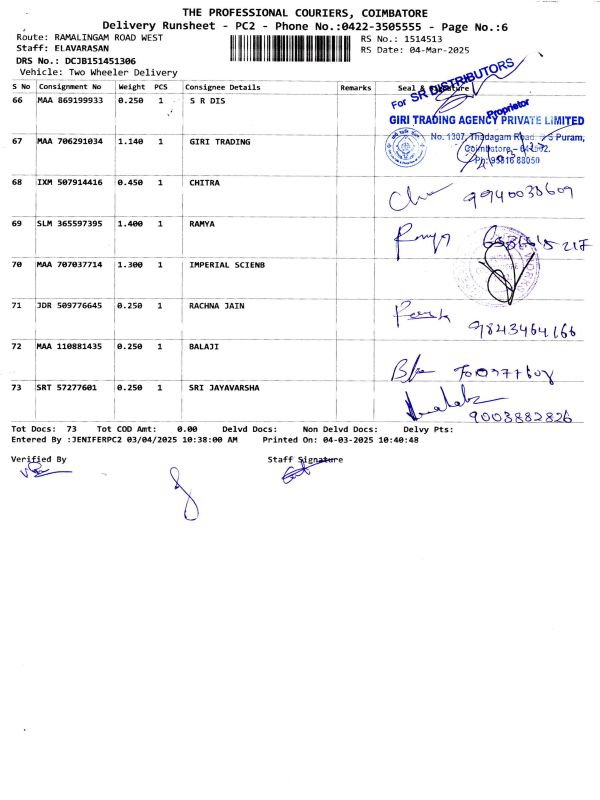 THE PROFESSIONAL COURIERS, COIMBATORE
Delivery Runsheet - PC2 - Phone No.:0422-3505555 - Page No.:6
Route: RAMALINGAM ROAD WEST RS No.: 1514513
Staff: ELAVARASAN RS Date: 04-Mar-2025
DRS No.: DCJB151451306
Vehicle: Two Wheeler Delivery
S No Consignment No Weight PCS Consignee Details Remarks Seal & Signature
For SR DISTRIBUTORS
Proprietor
66 MAA 869199933 0.250 1 S R DIS
GIRI TRADING AGENCY PRIVATE LIMITED
67 MAA 706291034 1.140 1 GIRI TRADING
No. 1307, Thadagam Road, Puram,
Coimbatore -
Ph: 95816 88050
68 IXM 507914416 0.450 1 CHITRA
9940038609
69 SLM 365597395 1.400 1 RAMYA
Ramya
70 MAA 707037714 1.300 1 IMPERIAL SCIENB
71 JDR 509776645 0.250 1 RACHNA JAIN
9843464166
72 MAA 110881435 0.250 1 BALAJI
73 SRT 57277601 0.250 1 SRI JAYAVARSHA
9003882826
Tot Docs: 73 Tot COD Amt: 0.00 Delvd Docs: Non Delvd Docs: Delvy Pts:
Entered By :JENIFERPC2 03/04/2025 10:38:00 AM Printed On: 04-03-2025 10:40:48
Verified By Staff Signature